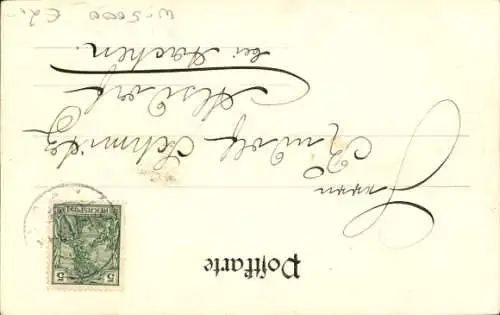 Postkarte
Herrn
Rudolf Schmitz
Alsdorf
bei Aachen.
5 5
REICHSPOST
W-5000